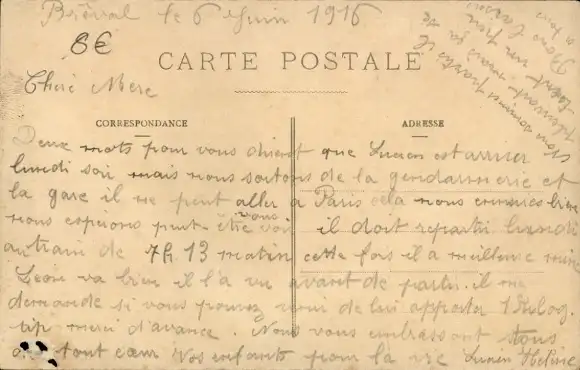 Bréval le 6 Juin 1916
8€
CARTE POSTALE
Cheré Mere
CORRESPONDANCE
ADRESSE
Deux mots pour vous que Lucien est arrivé
lundi soir mais nous sortons de la gendarmerie et
la gare il ne peut aller a Paris cela nous ennuies bien
nous espérions peut-être vous voir il doit repartir lundi
au train de 7h 13 matin cette fois il a meilleure mine
Leon va bien il l'a vu avant de partir il me
demande si vous pouvez de lui apporter 1 Kilog.
merci d'avance. Nous vous embrassont tous
de tout cœur Vos enfants pour la vie Lucien Helène
nous sommes il
mais ça